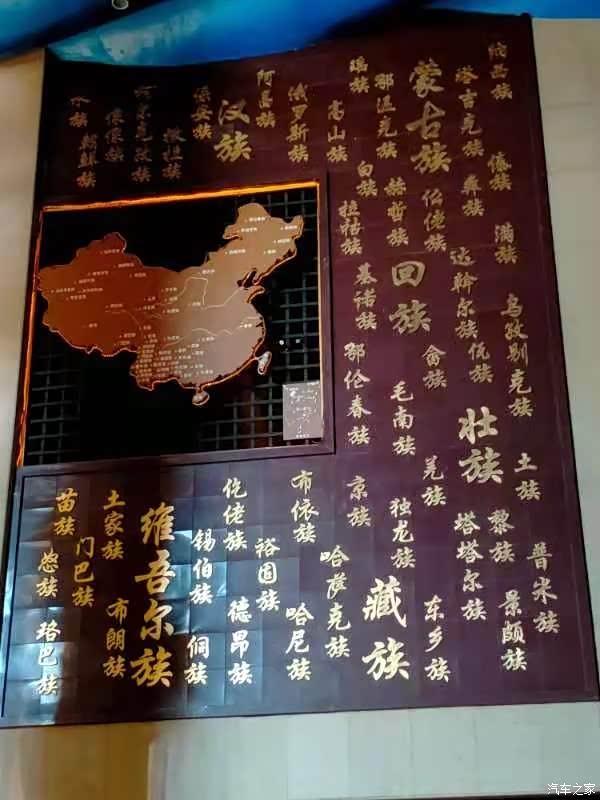 水族
朝鲜族
傈僳族
柯尔克孜族
撒拉族
保安族
汉族
阿昌族
俄罗斯族
高山族
瑶族
鄂温克族
蒙古族
塔吉克族
纳西族
白族
拉祜族
赫哲族
仡佬族
彝族
傣族
满族
基诺族
回族
达斡尔族
乌孜别克族
鄂伦春族
毛南族
畲族
佤族
壮族
土族
苗族
怒族
珞巴族
门巴族
土家族
布朗族
维吾尔族
锡伯族
侗族
仡佬族
德昂族
裕固族
布依族
哈尼族
哈萨克族
京族
独龙族
藏族
羌族
东乡族
塔塔尔族
黎族
景颇族
普米族
汽车之家